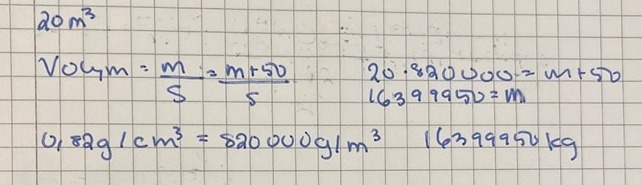 20 m³
Volym = m/S = m+50/S
20·820000 = m+50
16399950 = m
0,82g/cm³ = 820000g/m³
16399950 kg